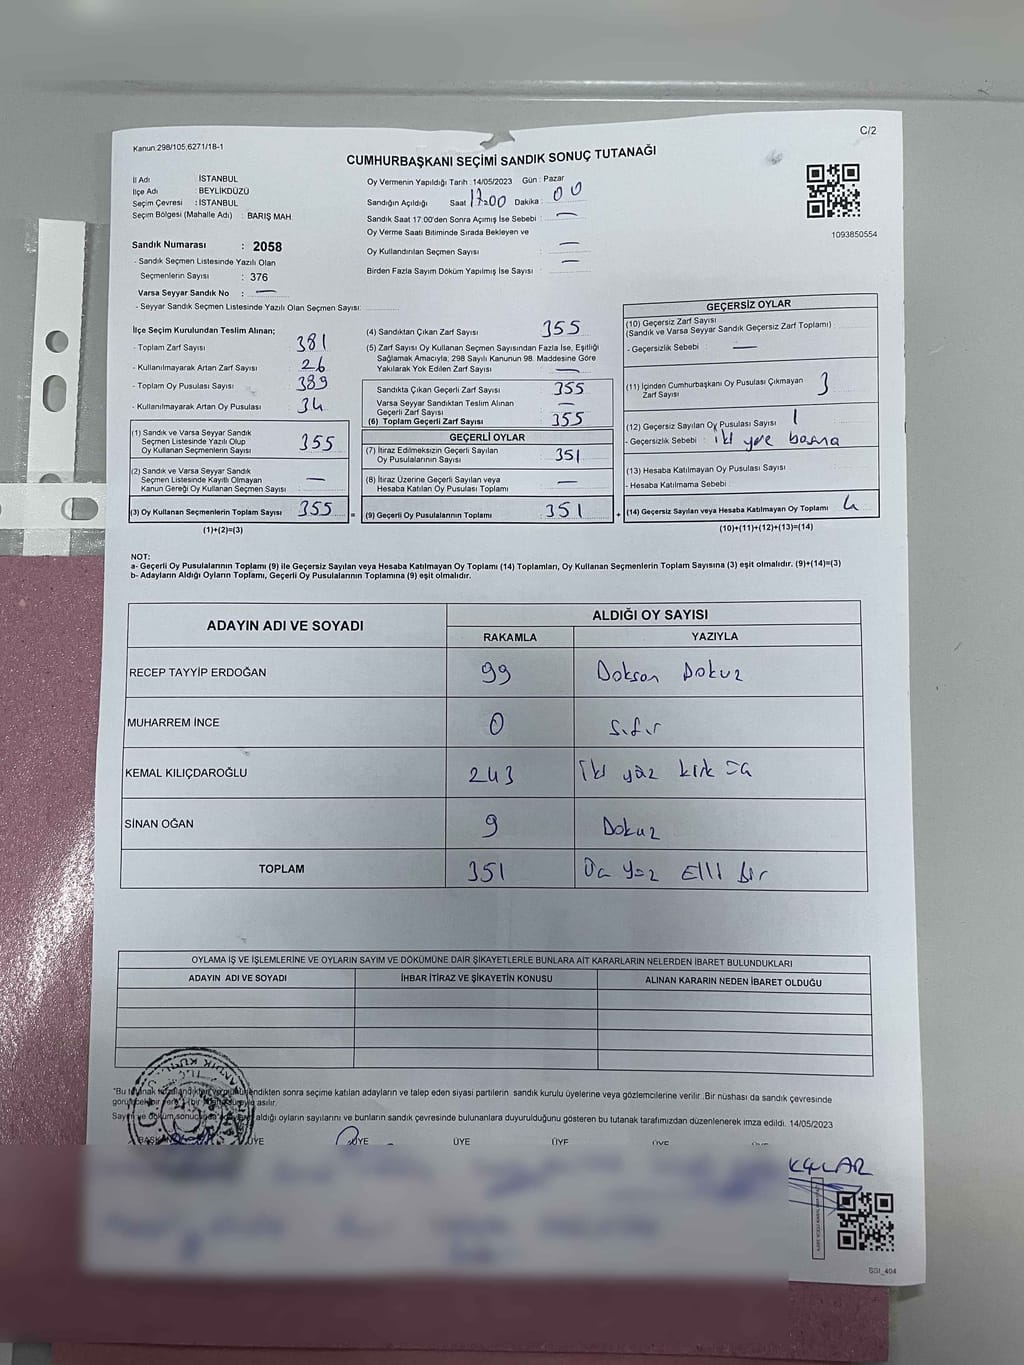 C/2
Kanun:298/105,6271/18-1
CUMHURBAŞKANI SEÇİMİ SANDIK SONUÇ TUTANAĞI
İl Adı : İSTANBUL
İlçe Adı : BEYLİKDÜZÜ
Seçim Çevresi : İSTANBUL
Seçim Bölgesi (Mahalle Adı) : BARIŞ MAH.
Oy Vermenin Yapıldığı Tarih :14/05/2023 Gün : Pazar
Sandığın Açıldığı Saat 17:00 Dakika : 00
Sandık Saat 17.00'den Sonra Açılmış İse Sebebi : —
Oy Verme Saati Bitiminde Sırada Bekleyen ve
Oy Kullandırılan Seçmen Sayısı : —
Birden Fazla Sayım Döküm Yapılmış İse Sayısı : —
1093850554
Sandık Numarası : 2058
- Sandık Seçmen Listesinde Yazılı Olan
Seçmenlerin Sayısı : 376
Varsa Seyyar Sandık No : —
- Seyyar Sandık Seçmen Listesinde Yazılı Olan Seçmen Sayısı:
İlçe Seçim Kurulundan Teslim Alınan;
- Toplam Zarf Sayısı 381
- Kullanılmayarak Artan Zarf Sayısı 26
- Toplam Oy Pusulası Sayısı 389
- Kullanılmayarak Artan Oy Pusulası 34
(1) Sandık ve Varsa Seyyar Sandık
Seçmen Listesinde Yazılı Olup
Oy Kullanan Seçmenlerin Sayısı 355
(2) Sandık ve Varsa Seyyar Sandık
Seçmen Listesinde Kayıtlı Olmayan
Kanun Gereği Oy Kullanan Seçmen Sayısı : —
(3) Oy Kullanan Seçmenlerin Toplam Sayısı 355
(1)+(2)=(3)
(4) Sandıktan Çıkan Zarf Sayısı 355
(5) Zarf Sayısı Oy Kullanan Seçmen Sayısından Fazla İse, Eşitliği
Sağlamak Amacıyla; 298 Sayılı Kanunun 98. Maddesine Göre
Yakılarak Yok Edilen Zarf Sayısı —
Sandıkta Çıkan Geçerli Zarf Sayısı 355
Varsa Seyyar Sandıktan Teslim Alınan
Geçerli Zarf Sayısı —
(6) Toplam Geçerli Zarf Sayısı 355
GEÇERLİ OYLAR
(7) İtiraz Edilmeksizin Geçerli Sayılan
Oy Pusulalarının Sayısı 351
(8) İtiraz Üzerine Geçerli Sayılan veya
Hesaba Katılan Oy Pusulası Toplamı —
= (9) Geçerli Oy Pusulalarının Toplamı 351
GEÇERSİZ OYLAR
(10) Geçersiz Zarf Sayısı
(Sandık ve Varsa Seyyar Sandık Geçersiz Zarf Toplamı) :
- Geçersizlik Sebebi : —
(11) İçinden Cumhurbaşkanı Oy Pusulası Çıkmayan
Zarf Sayısı 3
(12) Geçersiz Sayılan Oy Pusulası Sayısı 1
- Geçersizlik Sebebi : iki yere basma
(13) Hesaba Katılmayan Oy Pusulası Sayısı :
- Hesaba Katılmama Sebebi :
+ (14) Geçersiz Sayılan veya Hesaba Katılmayan Oy Toplamı 4
(10)+(11)+(12)+(13)=(14)
NOT:
a- Geçerli Oy Pusulalarının Toplamı (9) ile Geçersiz Sayılan veya Hesaba Katılmayan Oy Toplamı (14) Toplamları, Oy Kullanan Seçmenlerin Toplam Sayısına (3) eşit olmalıdır. (9)+(14)=(3)
b- Adayların Aldığı Oyların Toplamı, Geçerli Oy Pusulalarının Toplamına (9) eşit olmalıdır.
ADAYIN ADI VE SOYADI ALDIĞI OY SAYISI
RAKAMLA YAZIYLA
RECEP TAYYİP ERDOĞAN 99 Doksan Dokuz
MUHARREM İNCE 0 Sıfır
KEMAL KILIÇDAROĞLU 243 İki yüz kırk üç
SİNAN OĞAN 9 Dokuz
TOPLAM 351 Üç yüz Elli bir
OYLAMA İŞ VE İŞLEMLERİNE VE OYLARIN SAYIM VE DÖKÜMÜNE DAİR ŞİKAYETLERLE BUNLARA AİT KARARLARIN NELERDEN İBARET BULUNDUKLARI
ADAYIN ADI VE SOYADI İHBAR İTİRAZ VE ŞİKAYETİN KONUSU ALINAN KARARIN NEDEN İBARET OLDUĞU
sonra seçime katılan adayların ve talep eden siyasi partilerin sandık kurulu üyelerine veya gözlemcilerine verilir .Bir nüshası da sandık çevresinde
asılır.
aldığı oyların sayılarını ve bunların sandık çevresinde bulunanlara duyurulduğunu gösteren bu tutanak tarafımızdan düzenlenerek imza edildi. 14/05/2023
BAŞKAN ÜYE ÜYE ÜYE ÜYE ÜYE
SGI_404